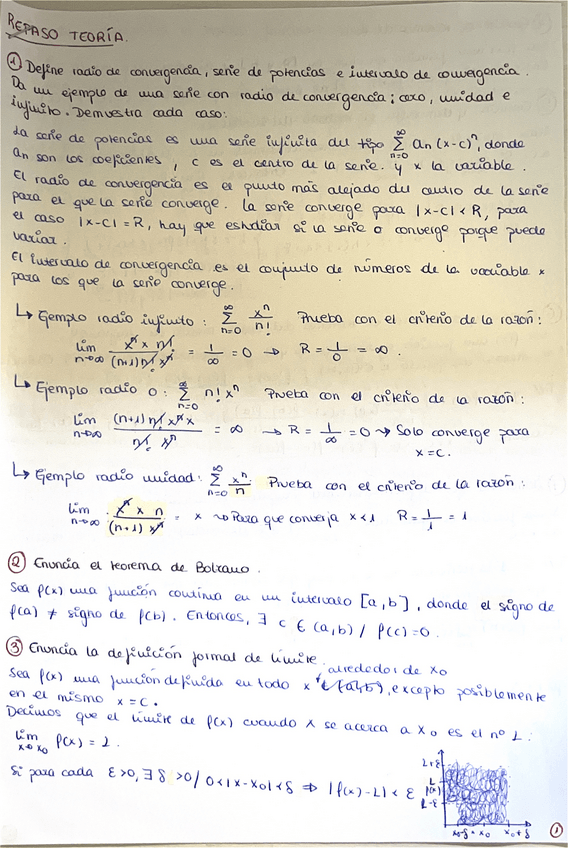 REPASO TEORÍA.
① Define radio de convergencia, serie de potencias e intervalo de convergencia.
Da un ejemplo de una serie con radio de convergencia: cero, unidad e
infinito. Demuestra cada caso:
La serie de potencias es una serie infinita del tipo ∑_{n=0}^{∞} an (x-c)^n, donde
an son los coeficientes, c es el centro de la serie. y x la variable.
El radio de convergencia es el punto más alejado del centro de la serie
para el que la serie converge. La serie converge para |x-c| < R, para
el caso |x-c| = R, hay que estudiar si la serie o converge porque puede
variar.
El intervalo de convergencia es el conjunto de números de la variable x
para los que la serie converge.
↳ Ejemplo radio infinito: ∑_{n=0}^{∞} x^n/n! Prueba con el criterio de la razón:
lim_{n→∞} x^n x n!/(n+1) n! x^n = 1/∞ = 0 → R = 1/0 = ∞.
↳ Ejemplo radio 0: ∑_{n=0}^{∞} n! x^n Prueba con el criterio de la razón:
lim_{n→∞} (n+1) n! x^n x/n! x^n = ∞ → R = 1/∞ = 0 → Solo converge para
x=c.
↳ Ejemplo radio unidad: ∑_{n=0}^{∞} x^n/n. Prueba con el criterio de la razón:
lim_{n→∞} x^n x n/(n+1) x^n = x → Para que converja x<1 R = 1/1 = 1
② Enuncia el teorema de Bolzano.
Sea f(x) una función continua en un intervalo [a,b], donde el signo de
f(a) ≠ signo de f(b). Entonces, ∃ c ∈ (a,b) / f(c)=0.
③ Enuncia la definición formal de límite.
alrededor de x0
Sea f(x) una función definida en todo x ∈ (a,b), excepto posiblemente
en el mismo x = c.
Decimos que el límite de f(x) cuando x se acerca a x0 es el nº L:
lim_{x→x0} f(x) = L.
Si para cada ε>0, ∃ δ >0 / 0<|x-x0|<δ ⇒ |f(x)-L| < ε
L+ε
L
f(x)
L-ε
x0-δ x x0 x0+δ
①